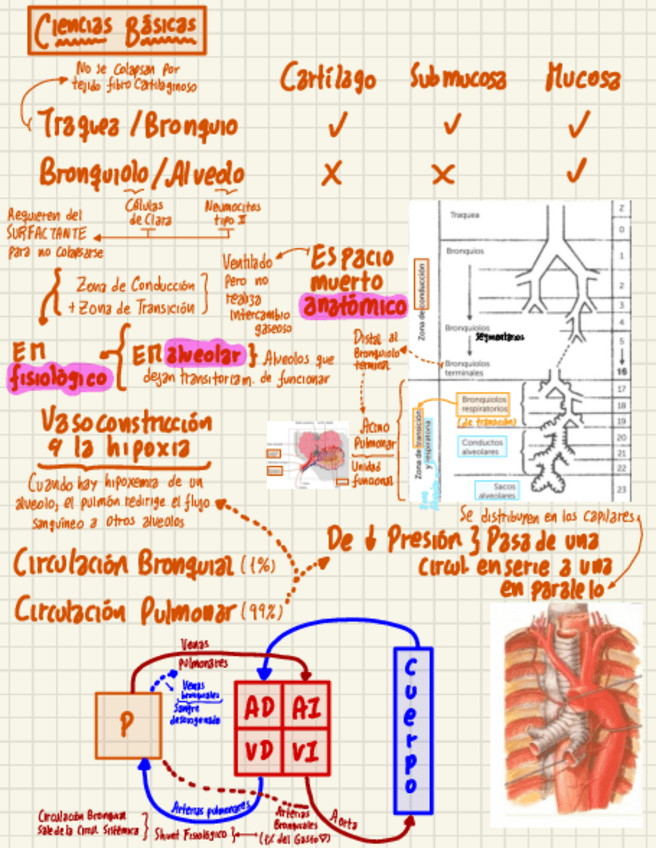 Ciencias Básicas
No se colapsan por
tejido fibro cartilaginoso
Cartílago Submucosa Mucosa
Traquea / Bronquio ✓ ✓ ✓
Bronquiolo / Alveolo X X ✓
Células
de Clara
Neumocitos
tipo II
Requieren del
SURFACTANTE
para no colapsarse
Zona de Conducción
+ Zona de Transición
Ventilado
pero no
realiza
intercambio
gaseoso
Espacio
muerto
anatómico
EM
fisiológico
EM alveolar } Alveolos que
dejan transitoriam. de funcionar
Distal al
Bronquiolo
terminal
Acino
Pulmonar
Unidad
funcional
Zona de conducción
Zona de transición
y respiratoria
Traquea
Bronquios
Bronquiolos
segmentarios
Bronquiolos
terminales
Bronquiolos
respiratorios
(de transición)
Conductos
alveolares
Sacos
alveolares
Z
0
1
2
3
4
5
16
17
18
19
20
21
22
23
Vasoconstricción
a la hipoxia
Cuando hay hipoxemia de un
alveolo, el pulmón redirige el flujo
sanguíneo a otros alveolos
Se distribuyen en los capilares
De ↓ Presión } Pasa de una
circul. en serie a una
en paralelo
Circulación Bronquial (1%)
Circulación Pulmonar (99%)
Venas
pulmonares
Venas
bronquiales
Sangre
desoxigenada
P
AD AI
VD VI
Cuerpo
Arterias pulmonares
Arterias
Bronquiales
(1% del Gasto ♡)
Aorta
Circulación Bronquial
Sale de la Circul. Sistémica } Shunt Fisiológico